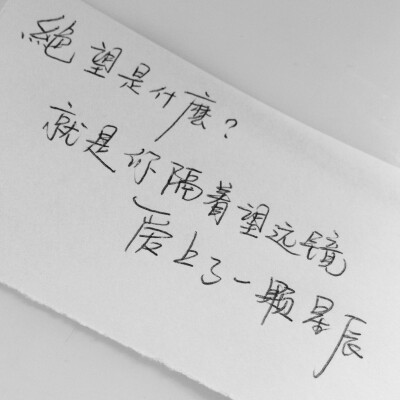 絕望是什麼?
就是你隔着望远镜
爱上了一颗星辰